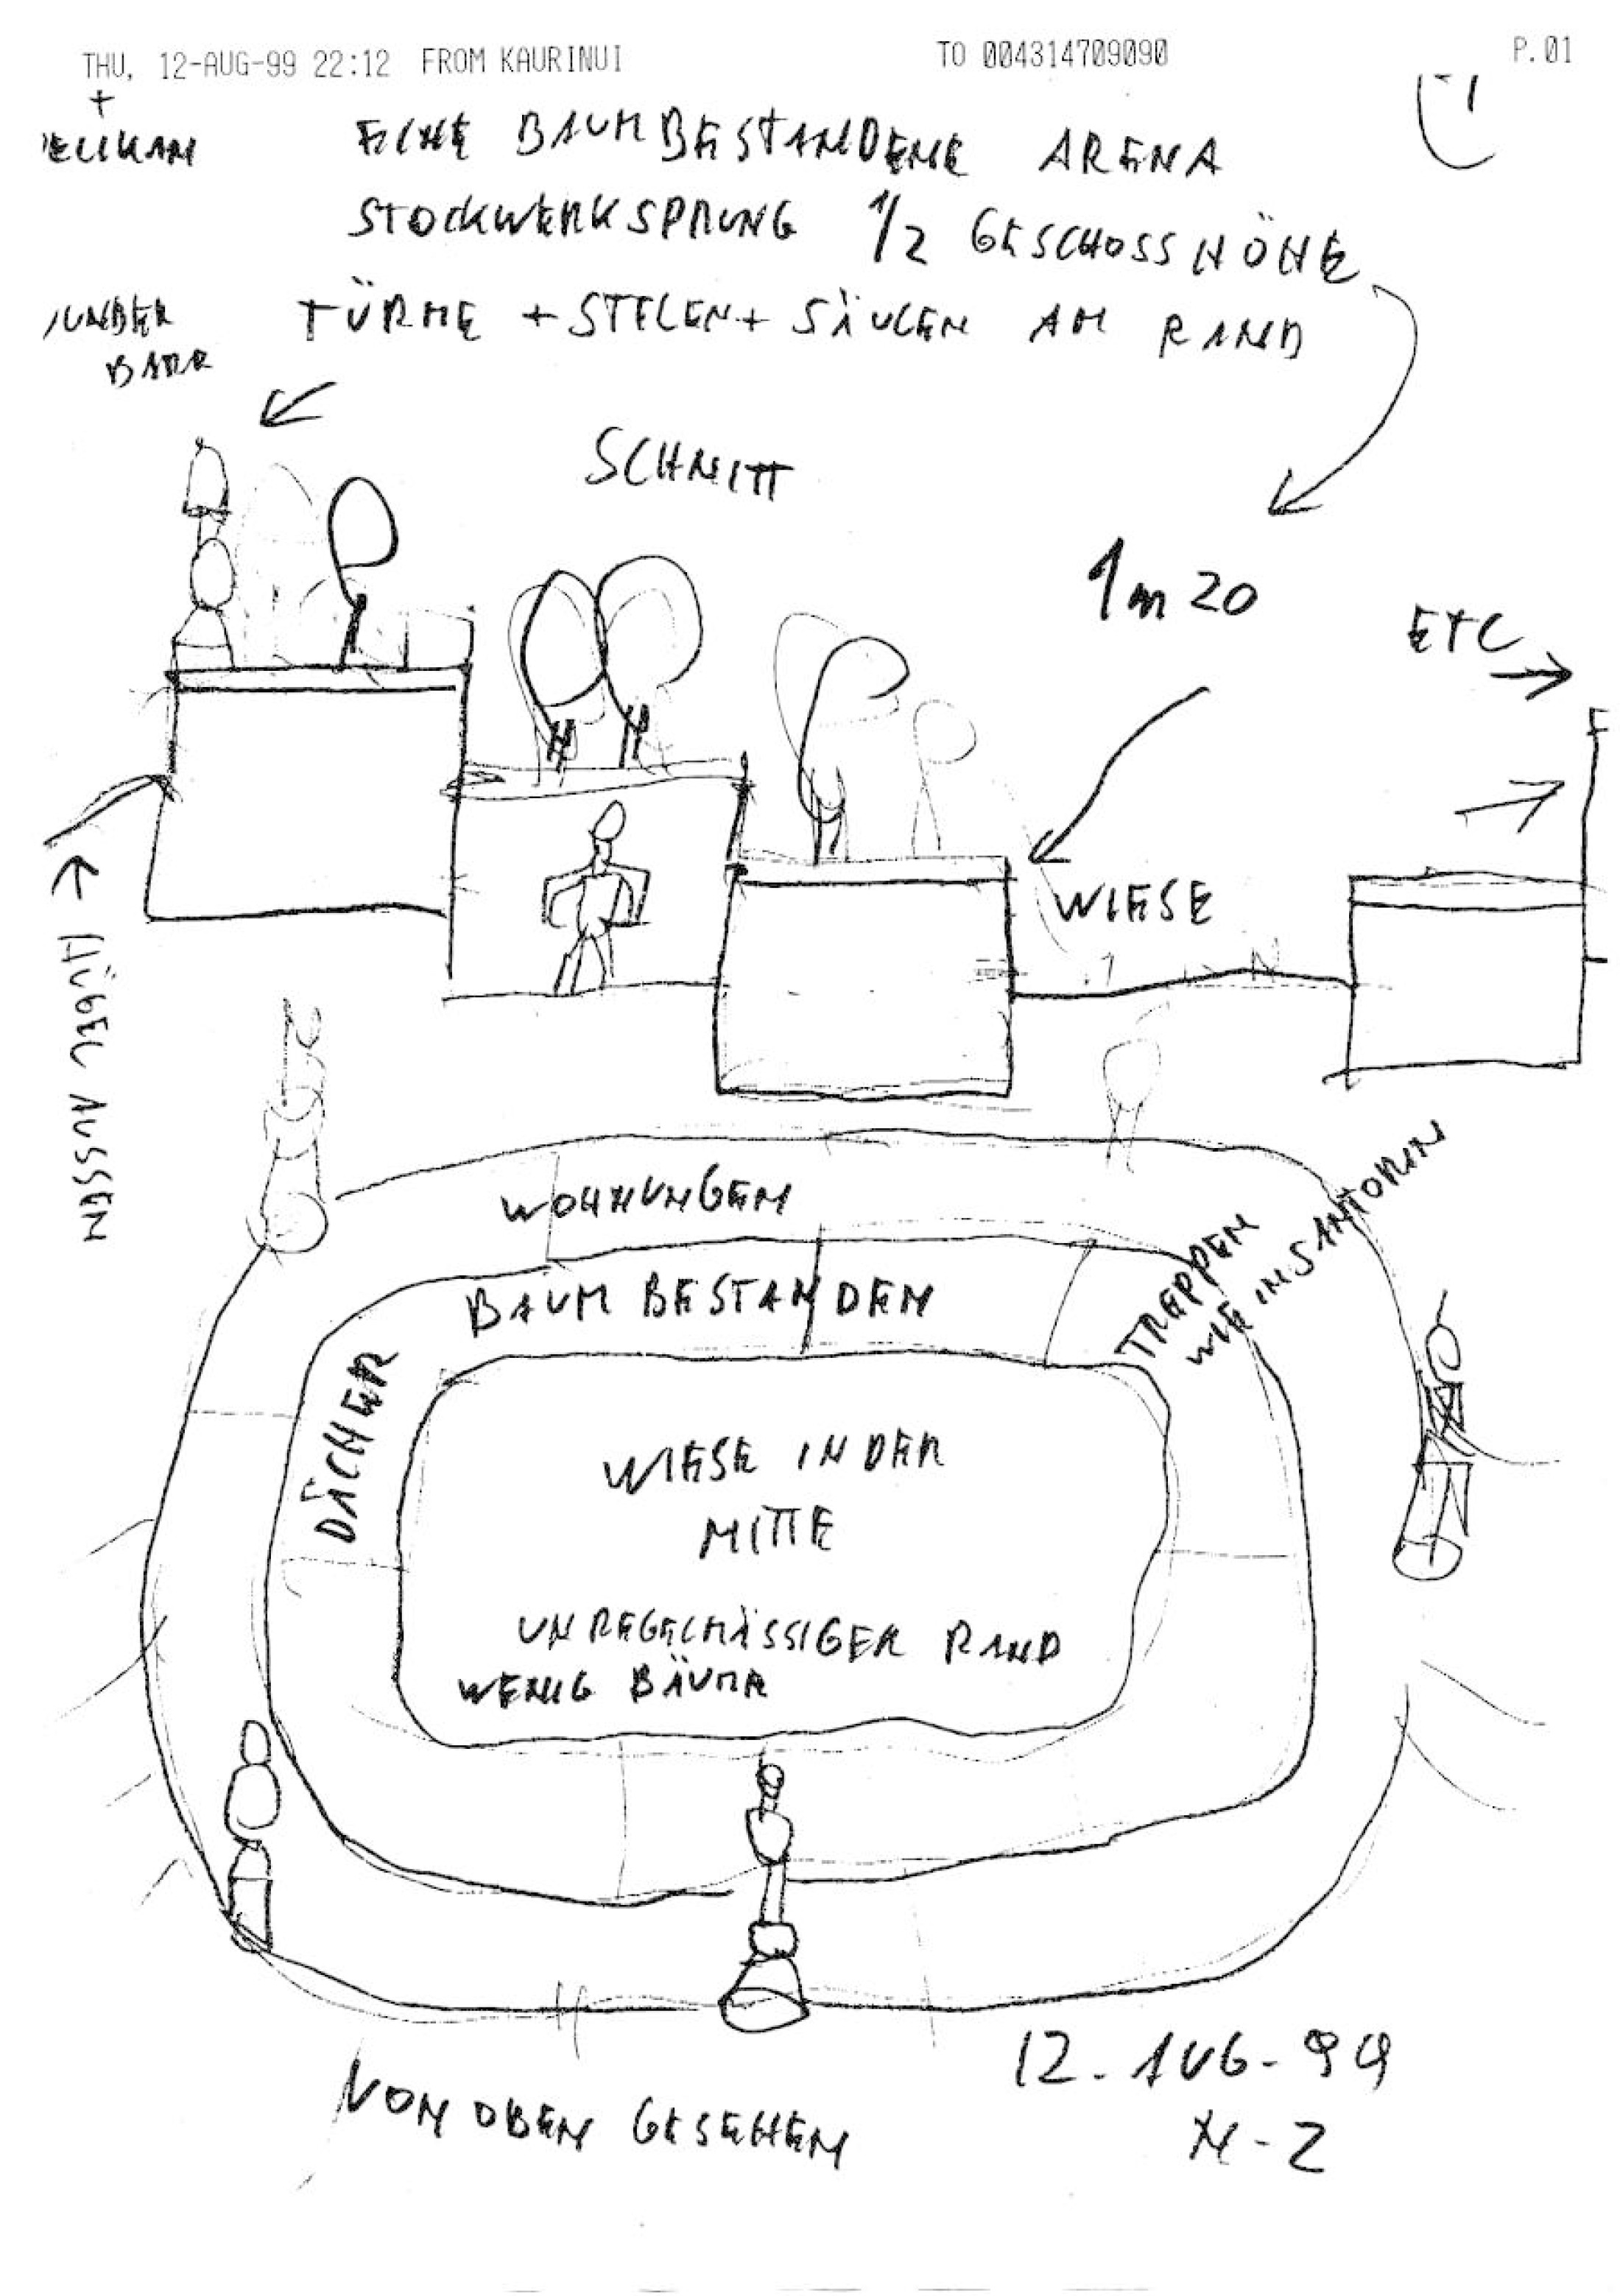 THU, 12-AUG-99 22:12 FROM KAURINUI TO 004314709090 P.01
+
ELIKAN
EINE BAUMBESTANDENE ARENA
STOCKWERKSPRUNG 1/2 GESCHOSSHÖHE
UNDER
BARR
TÜRME + STELEN + SÄULEN AM RAND
SCHNITT
1m 20
ETC
WIESE
HÜGEL AUSSEN
WOHNUNGEN
BAUM BESTANDEN
TREPPEN
WIE IN SANTORIN
DÄCHER
WIESE IN DER
MITTE
UNREGELMÄSSIGER RAND
WENIG BÄUME
VON OBEN GESEHEN
12. AUG - 99
N - Z